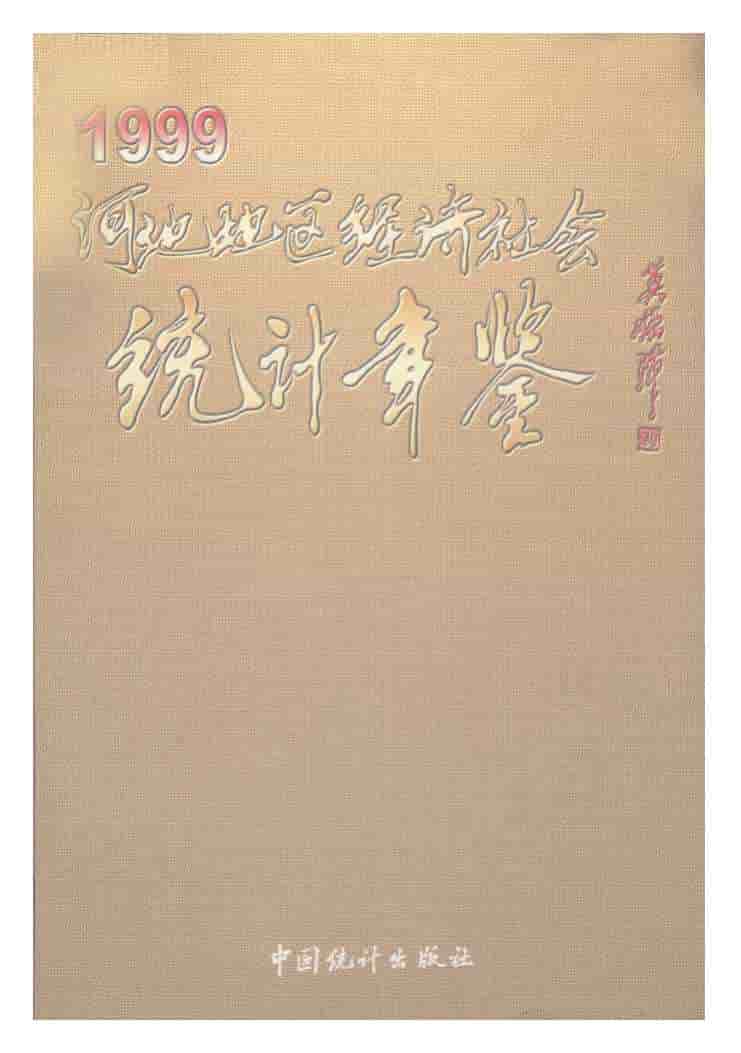 1999
河池地区经济社会
统计年鉴
中国统计出版社